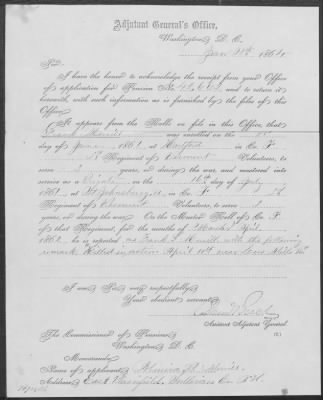 Adjutant General's Office,
Washington, D. C.
186
Sir:
I have the honor to acknowledge the receipt from your Office
of application for Pension No. and to return it
herewith, with such information as is furnished by the files of this
Office.
It appears from the Rolls on file in this Office, that
was enrolled on the
day of June 1861, at in Co. F
Regiment of Vermont Volunteers, to
serve 3 years, or during the war, and mustered into
service as a Private on the 16th day of July
1861, at St Johnsbury in Co. F
Regiment of Vermont Volunteers, to serve 3
years, or during the war. On the Muster Roll of Co. F
of that Regiment, for the months of March & April
1862, he is reported as Frank with the following
remark Killed in action April 16th near Lees Mills
I am, Sir, very respectfully,
Your obedient servant,
Assistant Adjutant General.
The Commissioner of Pensions,
Washington, D. C.
Memoranda:
Name of applicant, Almira
Address, East Sullivan Co. N.H.